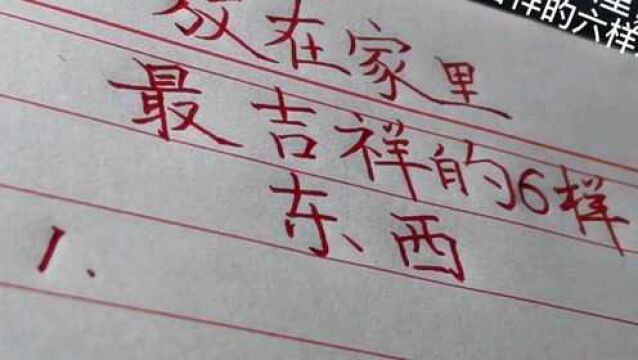 放在家里
最吉祥的6样
东西
1、
样的六样